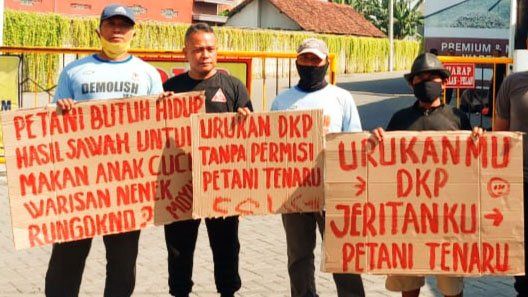 PREMIUM & M
HARAP
DEMOLISH
PETANI BUTUH HIDUP
HASIL SAWAH UNTUK
MAKAN ANAK CUCU
WARISAN NENEK
MOYANG
RUNGOKNO ?
URUKAN DKP
TANPA PERMISI
PETANI TENARU
URUKANMU
DKP
JERITANKU
PETANI TENARU